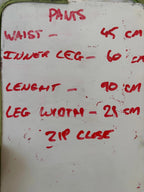 PANTS
WAIST - 45 CM
INNER LEG - 60 CM
LENGHT - 90 CM
LEG WIDTH - 29 CM
ZIP CLOSE